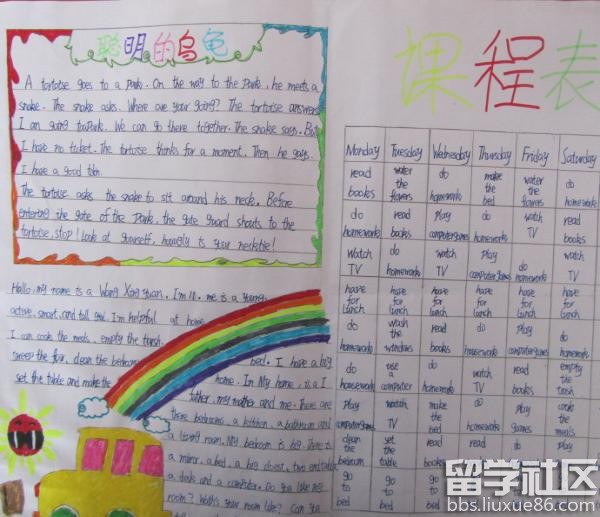 聪明的乌龟
A tortoise goes to a Park. On the way to the Park, he meets a
snake. The snake asks. Where are your going? The tortoise answers
I am going tooPark. We can go there together. The snake says. But
I have no ticket. The tortoise thinks for a moment. Then he says.
I have a good
The tortoise asks the snake to sit around his neck. Before
entering the gate of the Park, the gate guard shouts to the
tortoise, stop! Look at yourself, is your necktie!
Hello, my name is a Wang Xing Yuan. I'm 10. me is a young,
active, smart, and tall girl. I'm helpful at home
I can cook the meals, empty the trash,
sweep the floor, clean the bedroom
set the table and make the bed. I have a big
home. In My home, is a I
father, my mother and me. There are
three bedrooms, a kitchen, a bathroom and
a living room. My bedroom is big. There is
a mirror, a bed, a big closet, two end tables
a desk and a computer. Do you like my
room? What's your room like? Can you
课程表
Monday Tuesday Wednesday Thursday Friday Saturday
read books water the flowers do homeworks make the bed water the flowers do homeworks
do homeworks read books play computer games do homeworks watch TV read books
watch TV do homeworks watch TV play computer games do homeworks watch TV
have for lunch have for lunch have for lunch have for lunch have for lunch have for lunch
do homeworks wash the windows read books do houseworks play computer games do homeworks
do houseworks use a computer do homeworks watch TV read books empty the trash
play computer games watch TV make the bed do homeworks play games cook the meals
clean the bedroom set the table read books read books do homeworks play
go to bed go to bed go to bed go to bed go to bed go to bed
留学社区
bbs.liuxue86.com